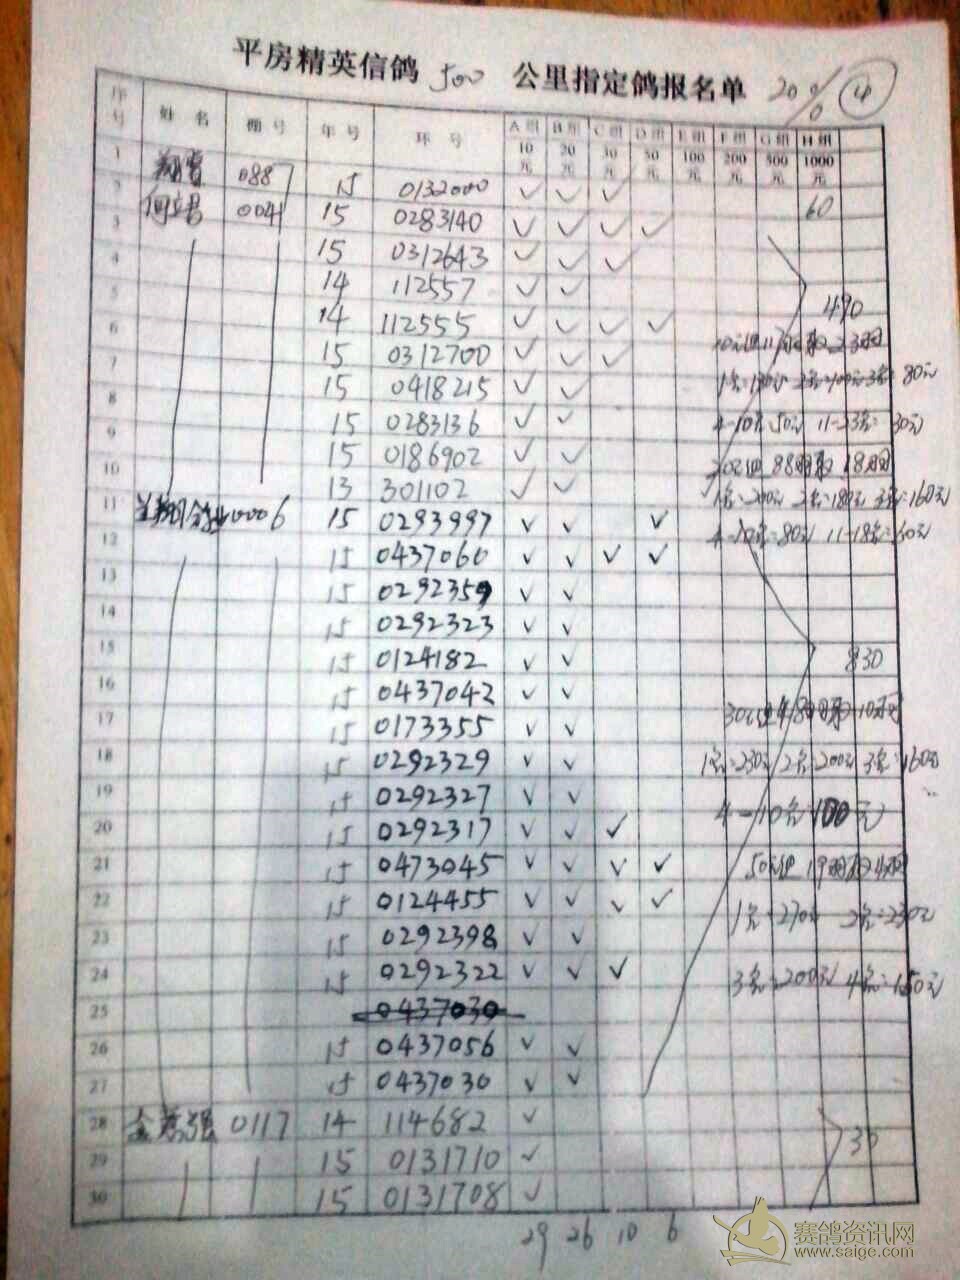 平房精英信鸽 500 公里指定鸽报名单 20% ④
序号 姓名 棚号 年号 环号 A组10元 B组20元 C组30元 D组50元 E组100元 F组200元 G组500元 H组1000元
1 0887 15 0132000 ✓ ✓ ✓ 60
2 0041 15 0283140 ✓ ✓ ✓ ✓
3 15 0312643 ✓ ✓ ✓
4 14 112557 ✓ ✓
5 14 112555 ✓ ✓ ✓ ✓ 490
6 15 0312700 ✓ ✓ ✓
7 15 0418215 ✓ ✓ 80元
8 15 0283136 ✓ ✓ 4-10名:50元 11-23名:30元
9 15 0186902 ✓ ✓
10 13 301102 ✓ ✓ 1名:200元 2名:180元 3名:160元
11 0006 15 0293997 ✓ ✓ ✓ 4-10名:80元 11-18名:60元
12 15 0437060 ✓ ✓ ✓ ✓
13 15 0292359 ✓ ✓
14 15 0292323 ✓ ✓
15 15 0124182 ✓ ✓ 830
16 15 0437042 ✓ ✓
17 15 0173355 ✓ ✓
18 15 0292329 ✓ ✓ 1名:230元 2名:200元 3名:160元
19 15 0292327 ✓ ✓ 4-10名:100元
20 15 0292317 ✓ ✓ ✓
21 15 0473045 ✓ ✓ ✓ ✓
22 15 0124455 ✓ ✓ ✓ ✓ 1名:270元 2名:230元
23 15 0292398 ✓ ✓
24 15 0292322 ✓ ✓ ✓ 3名:200元 4名:150元
25 0437030
26 15 0437056 ✓ ✓
27 15 0437030 ✓ ✓
28 0117 14 114682 ✓
29 15 0131710 ✓ 30
30 15 0131708 ✓
29 26 10 6
赛鸽资讯网
www.saige.com